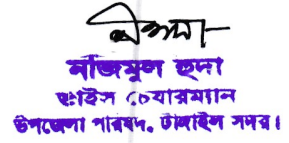 নাজমুল হুদা
ভাইস চেয়ারম্যান
উপজেলা পরিষদ, টাঙ্গাইল সদর।